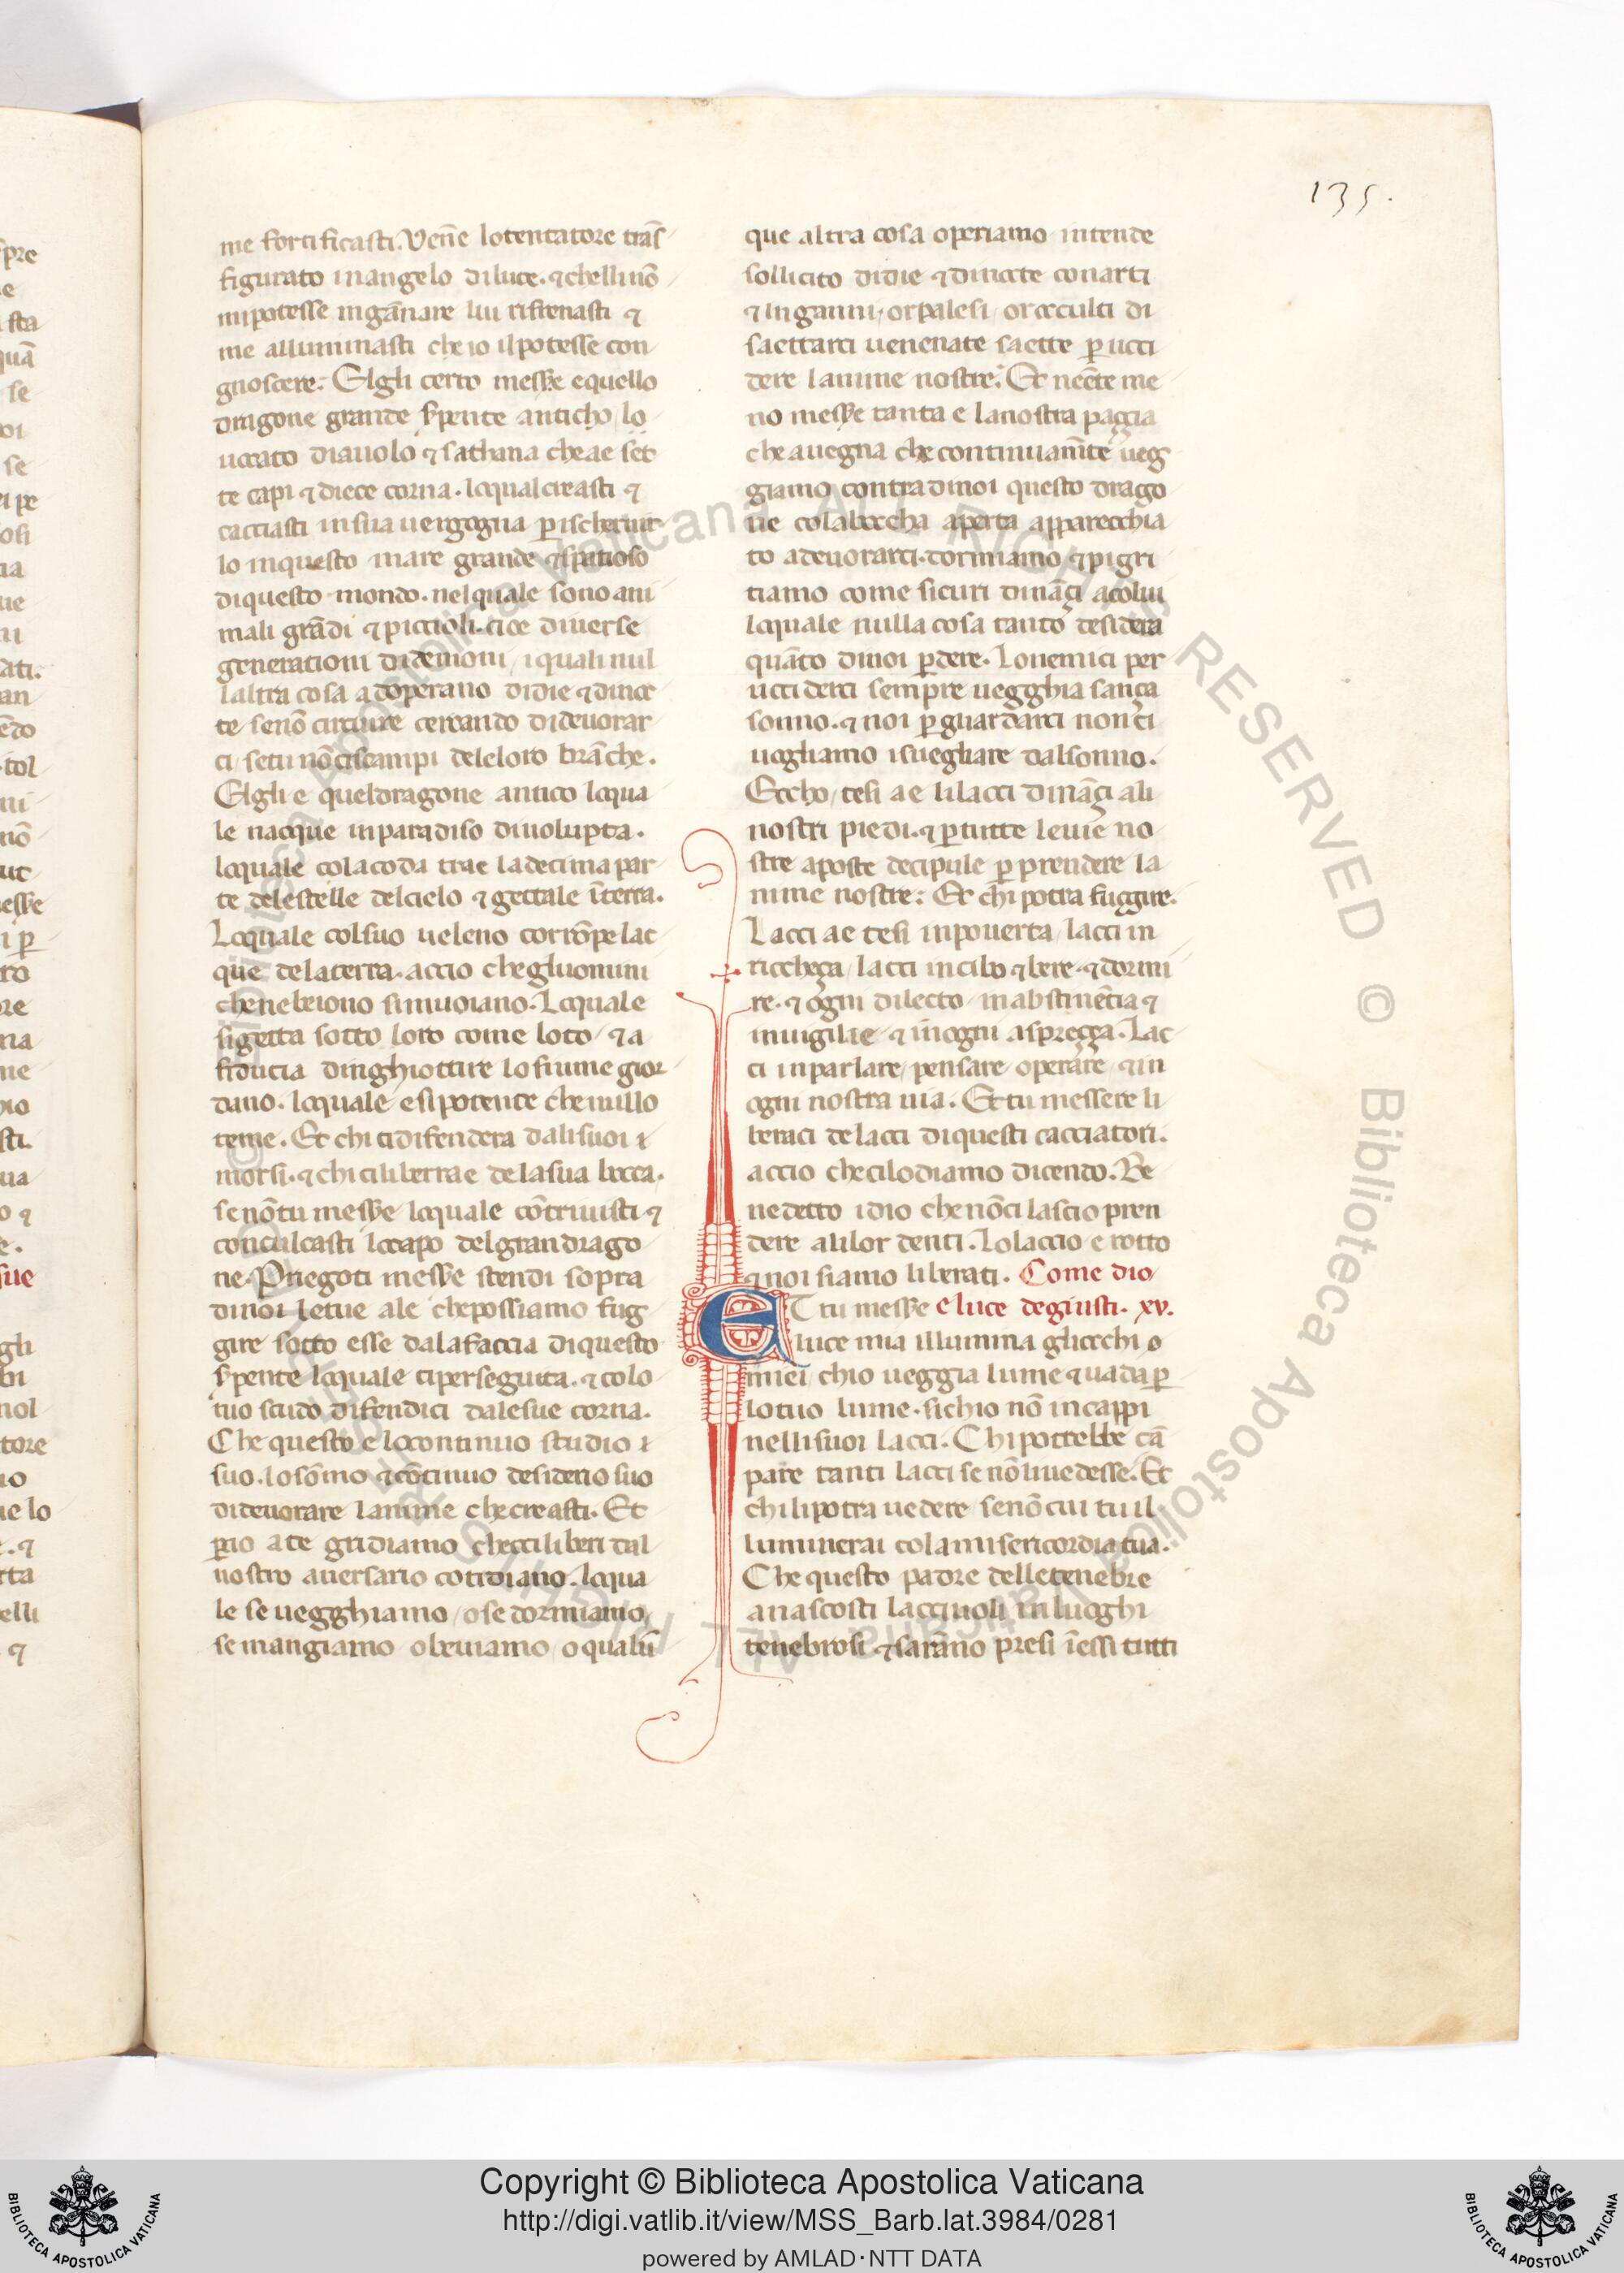 135.
me fortificasti. Uen̄e lotentatore trās
figurato inangelo diluce. ⁊ chellinō
mipotesse ingānare lui rifrenasti ⁊
me alluminasti che io ilpotesse con
gnoscere. Elgli certo mess̄e equello
dragone grande s̄pente anticho lo
uocato diauolo ⁊ sathana cheae set
te capi ⁊ diece corna. loqual creasti ⁊
cacciasti insua uergogna ꝑ
lo inquesto mare grande ⁊ spatioso
diquesto mondo. nelquale sono ani
mali grādi ⁊ piccioli. cioe diuerse
generationi didemoni, iquali nul
laltra cosa adoperano didie ⁊ dinoc
te senō circuire cercando dideuorar
ci, setu nō ciscampi deleloro brāche.
Elgli e queldragone antico loqua
le nacque inparadiso diuolupta.
loquale colacoda trae ladecima par
te delestelle delcielo ⁊ gettale īterra.
Loquale colsuo ueleno corrōpe lac
que delaterra. accio che gluomini
chenebeiono simuoiano. Loquale
sigetta sotto loro come loto / ⁊ a
fiducia dinghiottire lo fiume gior
dano. loquale e si potente che nullo
teme. Et chi cidifendera dali suoi
morsi. ⁊ chi ciliberrae delasua bocca.
se nōtu mess̄e loquale cōtriuisti ⁊
conculcasti locapo delgran drago
ne. Priegoti mess̄e stendi sopra
dinoi letue ale chepossiamo fug
gire sotto esse dalafaccia diquesto
s̄pente loquale ciperseguita. ⁊ colo
tuo scudo difendici dalesue corna.
Che questo e locontinuo studio
suo. lo sōmo ⁊ cōtinuo desiderio suo
dideuorare lanime checreasti. Et
ꝑcio a te gridiamo checciliberi dal
nostro auersario cotidiano. loqua
le se uegghiamo / o se dormiamo,
se mangiamo o beuiamo, o qualū
que altra cosa operiamo intende
sollicito didie ⁊ dinocte conarti
⁊ inganni, or palesi, or occulti di
saettarci uenenate saette ꝑ ucci
dere lanime nostre. Et neēte me
no mess̄e tanta e lanostra paççia
che auegna che continuam̄te ueg
giamo contradinoi questo drago
ne colaboccha aperta apparecchia
to adeuorarci. dormiamo ⁊ pigri
tiamo come sicuri dināçi acolui
loquale nulla cosa tanto desidera
quāto dinoi ꝑdere. Lonemici per
ucciderci sempre uegghia sança
sonno. ⁊ noi ꝑ guardarci non ci
uogliamo isuegliare dalsonno.
Eccho / tesi ae lilacci dināçi ali
nostri piedi. ⁊ ꝑ tutte leuie no
stre aposte decipule ꝑ prendere la
nime nostre. Et chi potra fuggire.
Lacci ae tesi inpouerta / lacci in
riccheça / lacci incibo ⁊ bere. ⁊ dormi
re. ⁊ ogni dilecto inabstinētia ⁊
inuigilie ⁊ inogni aspreçça. Lac
ci inparlare / pensare operare ⁊ in
ogni nostra uia. Et tu messere li
beraci delacci diquesti cacciatori.
accio checilodiamo dicendo. Be
nedetto idio che nōci lascio pren
dere alilor denti. Lolaccio e rotto
⁊ noi siamo liberati. Come dio
Et tu mess̄e e luce degiusti. xv.
luce mia illumina gliocchi
miei chio ueggia lume ⁊ uada ꝑ
lotuo lume. sichio nō incappi
nellisuoi lacci. Chi potrebbe cā
pare tanti lacci se nō liuedesse. Et
chi lipotra uedere senō cui tu il
luminerai colamisericordia tua.
Che questo padre delletenebre
anascosti lacciuoli in luoghi
tenebrosi. ⁊ sarāno presi īessi tutti
Copyright © Biblioteca Apostolica Vaticana
http://digi.vatlib.it/view/MSS_Barb.lat.3984/0281
powered by AMLAD·NTT DATA